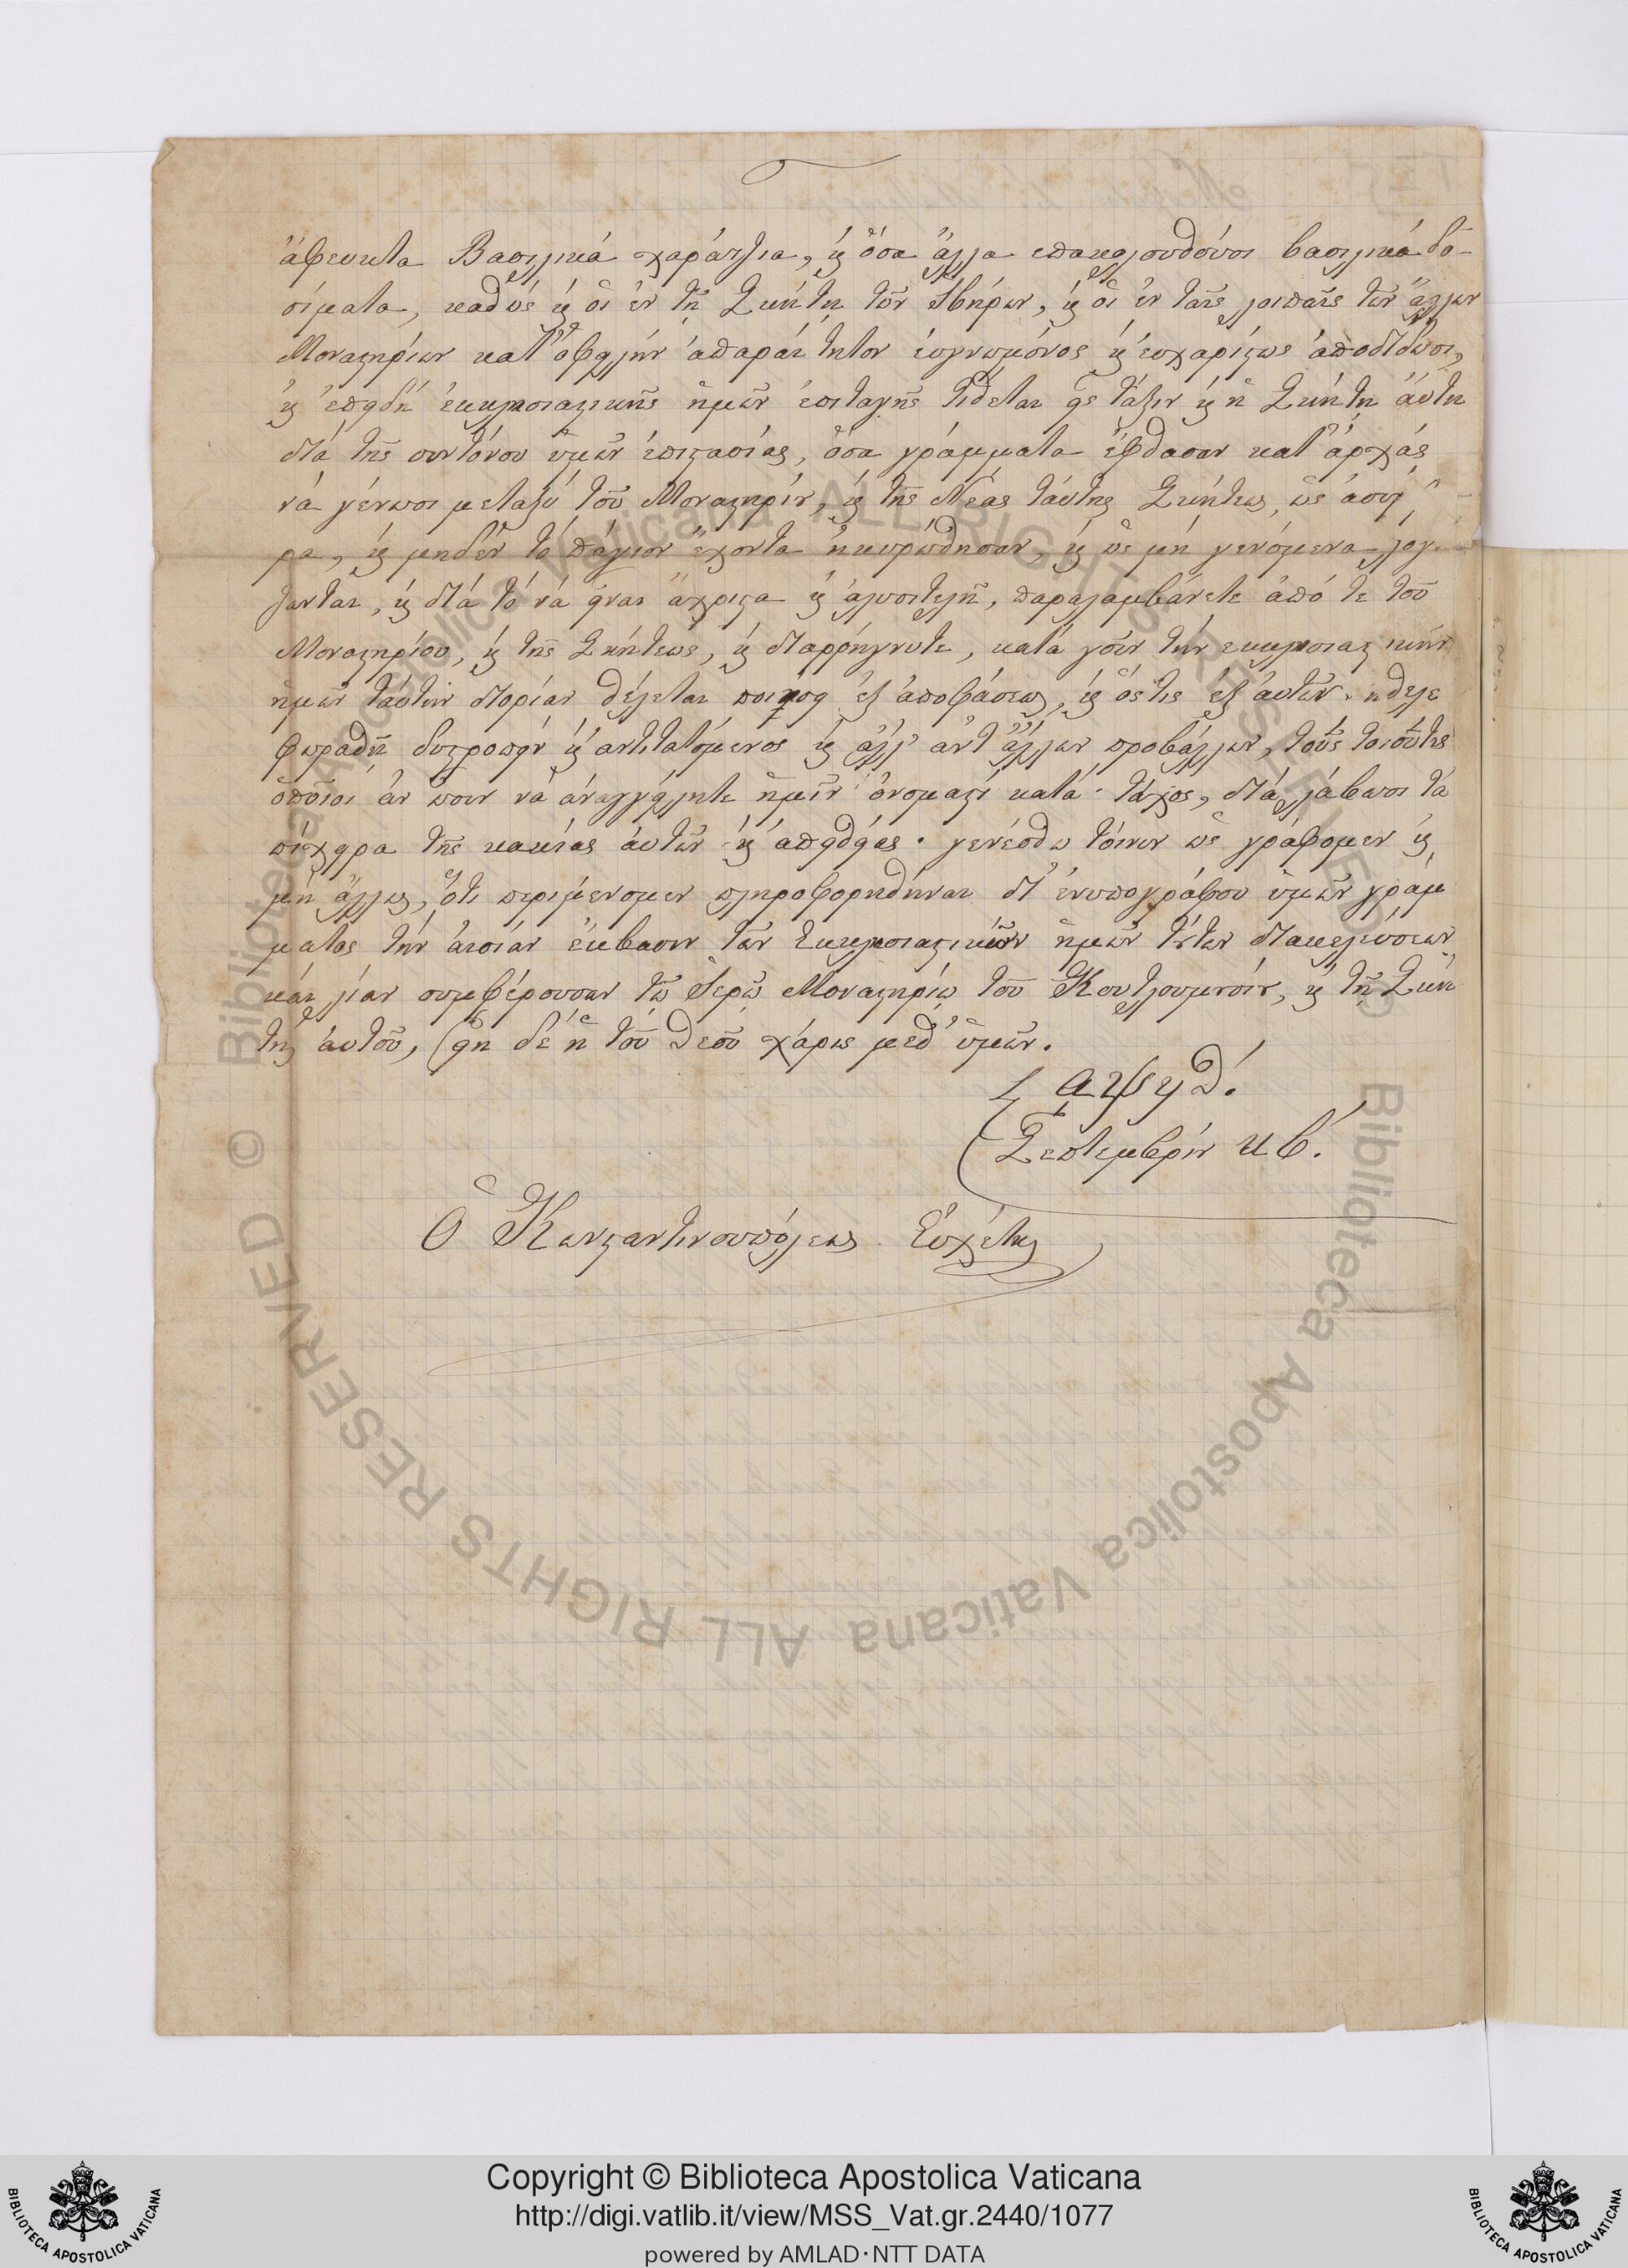 ἄφευκτα Βασιλικά χαράτζια, ϗ ὅσα ἄλλα επακολουθούσι βασιλικά δο-
σίματα, καθώς ϗ οἱ ἐν τῇ Σκήτῃ τῶν Ἰβήρων, ϗ οἱ ἐν ταῖς λοιπαῖς τῶν ἄλλων
Μοναστηρίων κατ' ὀφειλήν ἀπαραίτητον ἐυγνωμόνως ϗ ἐυχαρίστως ἀποδιδῶσι,
ϗ ἐπειδή ἐκκλησιαστικῆς ἡμῶν ἐπιταγῆς τίθεται εἰς τάξιν ϗ ἡ Σκήτη ἀύτη
διά τῆς συντόνου ὑμῶν ἐπιστασίας, ὅσα γράμματα ἐφθασαν κατ' ἀρχάς
νά γένωσι μεταξύ τοῦ Μοναστηρίου, ϗ τῆς Νέας τάυτης Σκήτεως, ὡς
ρα, ϗ μηδέν τό πάγιον ἔχοντα ἠκυρώθησαν, ϗ ὡς μή γενόμενα λογί
ζονται, ϗ διά τό νά ῃναι ἄχρηστα ϗ ἀλυσιτελῆ, παραλαμβάνετε ἀπό τε τοῦ
Μοναστηρίου, ϗ τῆς Σκήτεως, ϗ διαρρήγνυτε, κατά γοῦν τήν εκκλησιαστικήν
ἡμῶν ταύτην θέλεται ποιήσῃ ἐξ ἀποφάσεως, ϗ ὅστις ἐξ ἀυτῶν ηθελε
φωραθῇ δυστροπῶν ϗ αντιτατόμενος ϗ ἄλλ' ἀντ' ἄλλων προβάλλων, τοὺς τοιούτους
ὁποῖοι ἀν ὦσιν νὰ ἀναγγείλητε ἡμῖν ὀνομαστί κατά τάχος, διά νά λάβωσι τά
ἐπίχειρα τῆς κακίας ἀυτῶν ϗ ἀπειθείας. γενέσθω τόινυν ὡς γράφομεν ϗ
μή ἄλλως, ὅτι περιμένομεν πληροφορηθῆναι δι' ἐνυπογράφου ὑμῶν γράμ
ματος τήν ἀισίαν ἔκβασιν τῶν Εκκλησιαστικῶν ἡμῶν τούτων διακελεύσεων,
κάι λίαν συμφέρουσαν τῷ Ἱερῷ Μοναστηρίῳ τοῦ Κουτλουμουσίου, ϗ τῇ Σκή
τῃ ἀυτοῦ, εἴη δέ ἡ τοῦ Θεοῦ χάρις μεθ' ὑμῶν.
͵αψηθ΄.
Σεπτεμβρίου κβ΄.
Ὁ Κωνσταντινουπόλεως Ἐυχέτης
Copyright © Biblioteca Apostolica Vaticana
http://digi.vatlib.it/view/MSS_Vat.gr.2440/1077
powered by AMLAD·NTT DATA
BIBLIOTECA APOSTOLICA VATICANA
BIBLIOTECA APOSTOLICA VATICANA
Biblioteca Apostolica Vaticana ALL RIGHTS RESERVED ©
Biblioteca Apostolica Vaticana ALL RIGHTS RESERVED ©